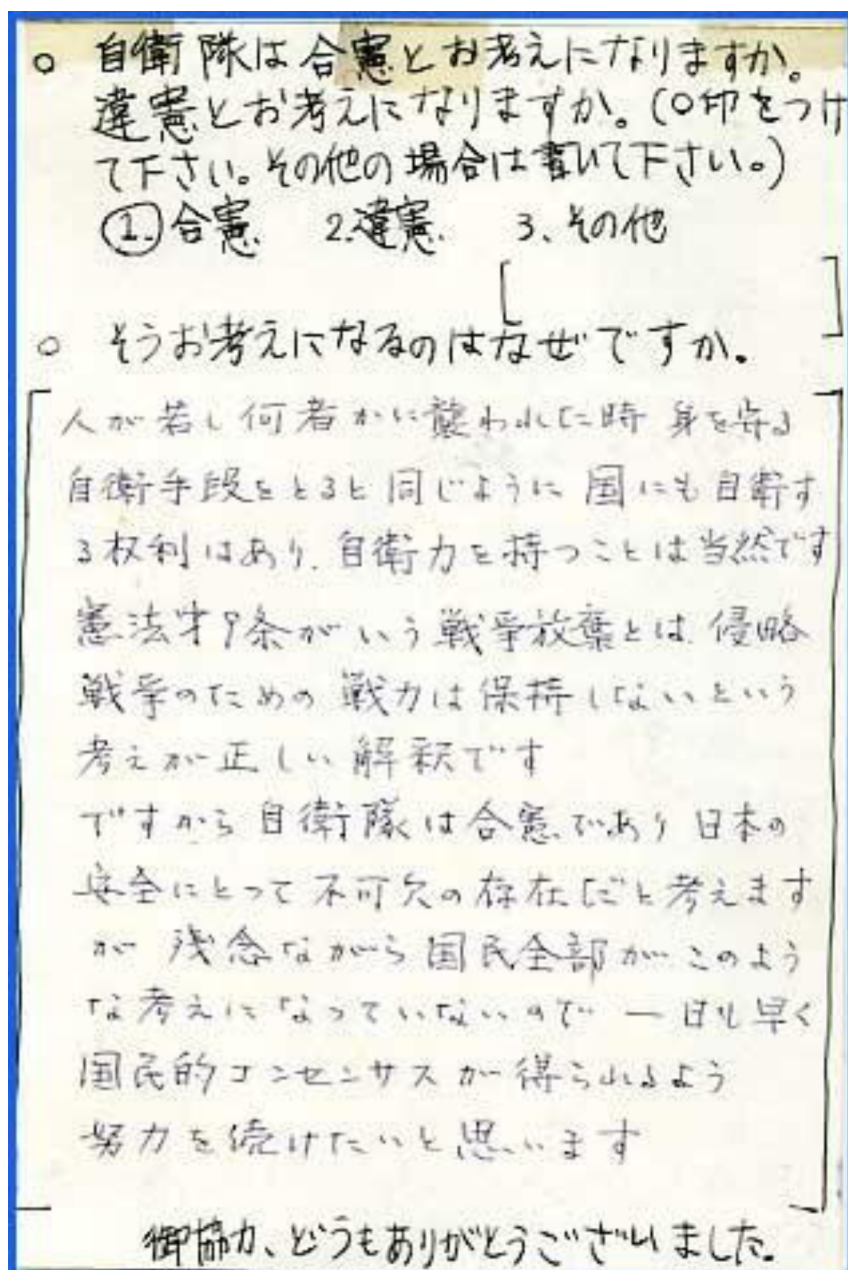 ○ 自衛隊は合憲とお考えになりますか。
違憲とお考えになりますか。(○印をつけ
て下さい。その他の場合は書いて下さい。)
①合憲. 2.違憲. 3、その他
[ ]
○ そうお考えになるのはなぜですか.
人が若し何者かに襲われた時 身を守る
自衛手段をとると同じように 国にも自衛す
る权利はあり、自衛力を持つことは当然です
憲法才9条がいう戦争放棄とは、侵略
戦争のための 戦力は保持しないという
考えが正しい解釈です
ですから自衛隊は合憲であり 日本の
安全にとって不可欠の存在だと考えます
が 残念ながら国民全部がこのよう
な考えになっていないので 一日も早く
国民的コンセンサスが得られるよう
努力を続けたいと思います
御協力、どうもありがとうございました.